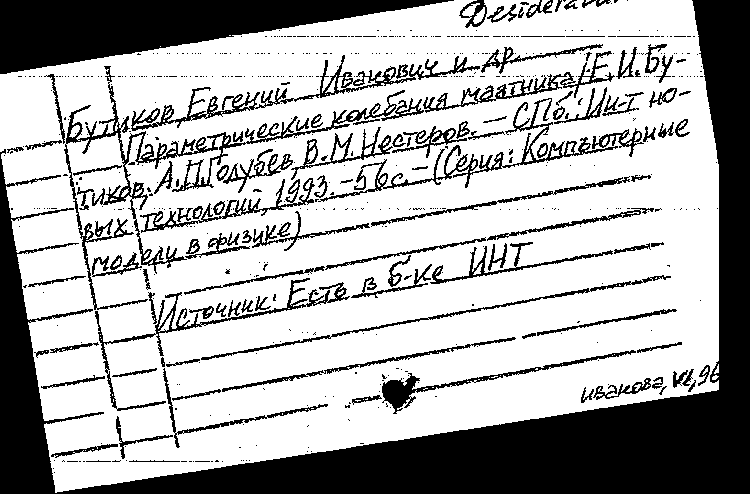 Desiderata
Бутиков, Евгений Иванович и др.
Параметрические колебания маятника/Е.И.Бу-
тиков, А.П.Голубев, В.М.Нестеров. – СПб.: Ин-т но-
вых технологий, 1993. – 56с. – (Серия: Компьютерные
модели в физике)
Источник: Есть в б-ке ИНТ
иванова, 96